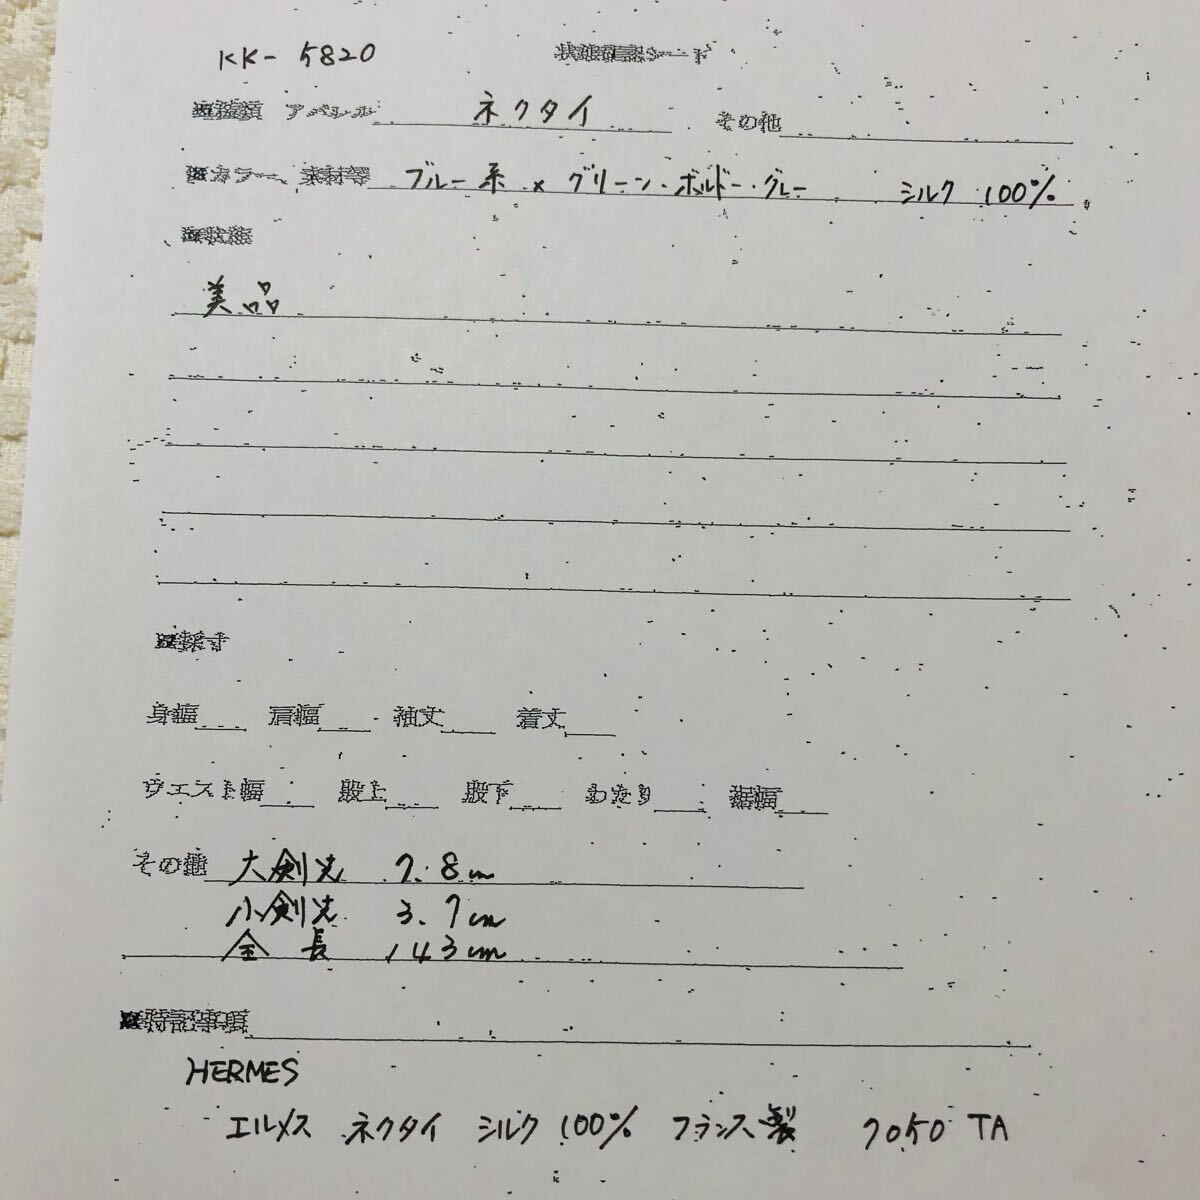 KK-5820 状態確認シート
■種類 アパレル ネクタイ その他
■カラー、素材等 ブルー系 × グリーン・ボルドー・グレー シルク 100%
■状態
美品
■採寸
身幅 肩幅 袖丈 着丈
ウエスト幅 股上 股下 わたり 裾幅
その他 大剣先 7.8cm
小剣先 3.7cm
全長 143cm
■特記事項
HERMES
エルメス ネクタイ シルク 100% フランス製 7050 TA